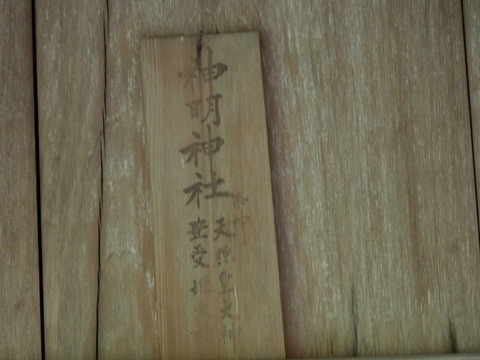 神明神社
祭神
天照皇大神
豊受姫